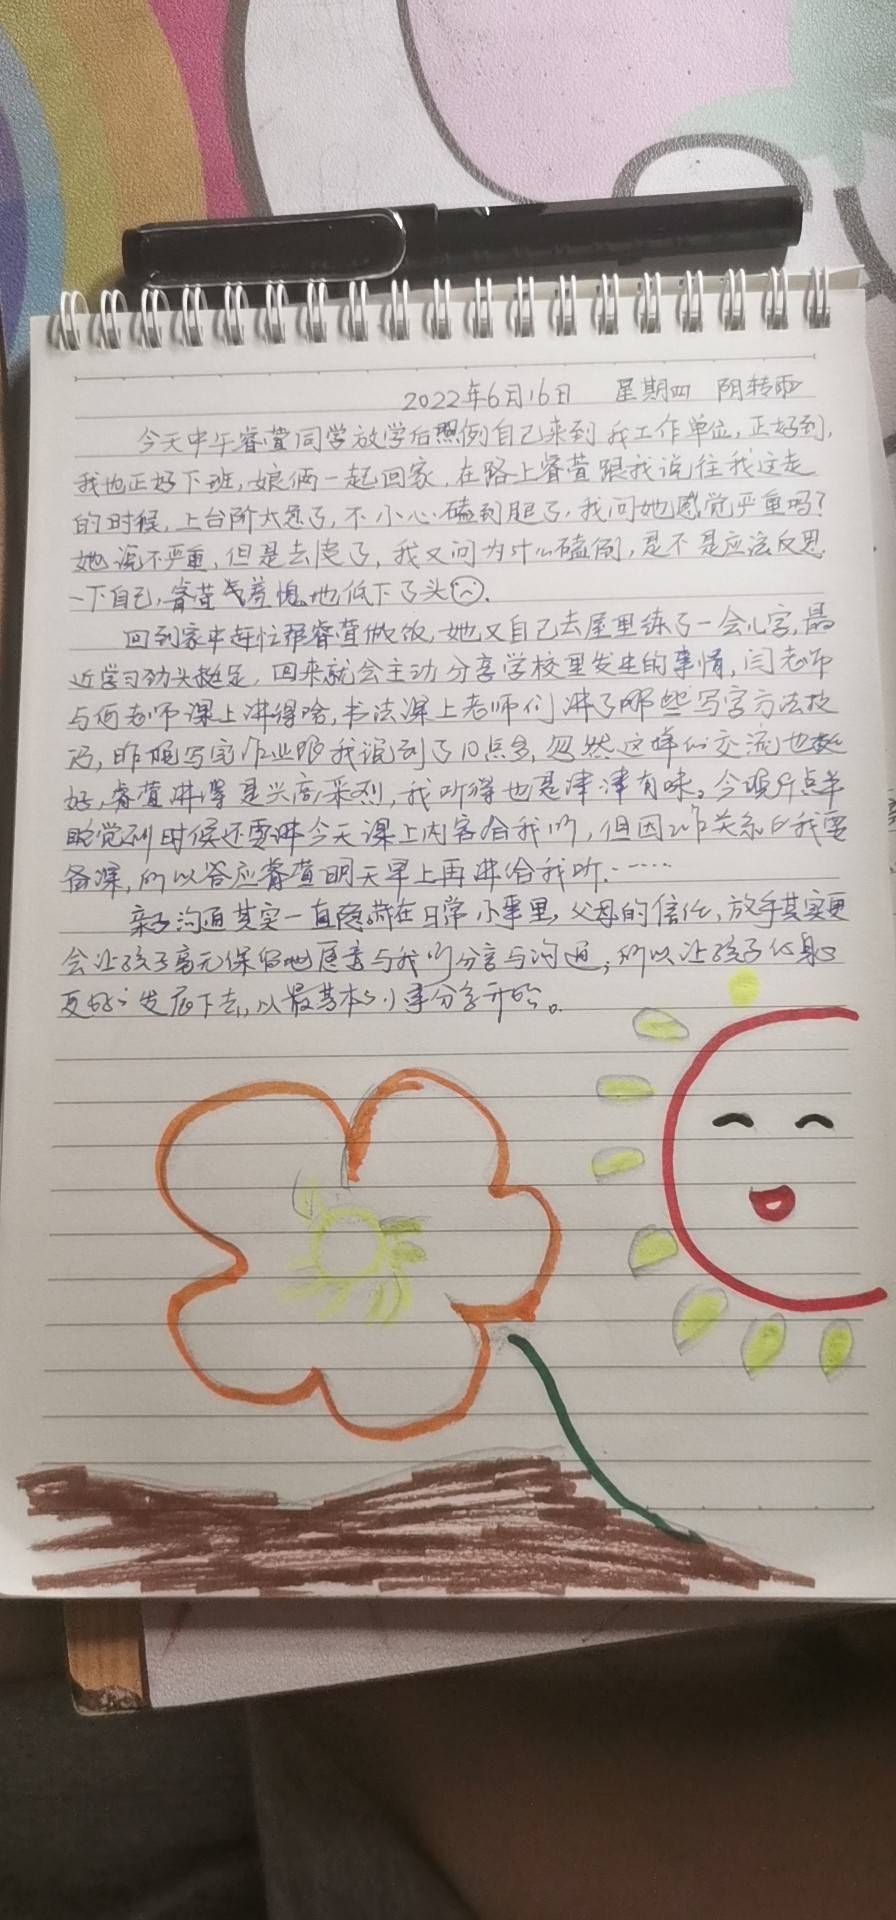 2022年6月16日 星期四 阴转雨
今天中午睿萱同学放学后照例自己来到我工作单位,正好到,
我也正好下班,娘俩一起回家,在路上睿萱跟我说往我这走
的时候,上台阶太急了,不小心磕到腿了,我问她感觉严重吗?
她说不严重,但是去皮了,我又问为什么磕倒,是不是应该反思
一下自己,睿萱羞愧地低下了头
回到家中赶忙帮睿萱做饭,她又自己去屋里练了一会儿字,最
近学习劲头挺足,回来就会主动分享学校里发生的事情,闫老师
与何老师课上讲得啥,书法课上老师们讲了哪些写字方法技
巧,昨晚写完作业跟我说到了10点多,忽然这样的交流也挺
好,睿萱讲得是兴高采烈,我听得也是津津有味。今晚9点半
睡觉到时候还要讲今天课上内容给我听,但因工作关系我要
备课,所以答应睿萱明天早上再讲给我听.……
亲子沟通其实一直隐藏在日常小事里,父母的信任,放手其实更
会让孩子毫无保留地愿意与我们分享与沟通,所以让孩子的身心
更好的发展下去,以最基本的小事分享开始。